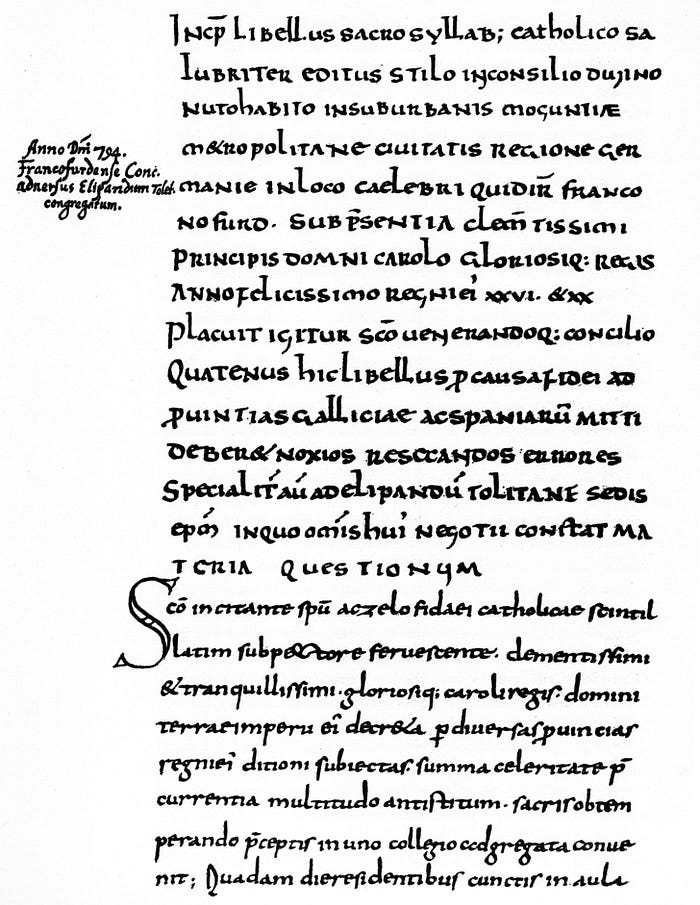 Incp̄ Libellus sacrosyllab; catholico sa
lubriter editus stilo inconsilio diuino
nutohabito insuburbanis moguntiæ
m&ropolitane ciuitatis regione ger
Anno Dn̄i 794.
Francofurdense Conc.
aduersus Elipandum Tolet.
congregatum.
manie inloco caelebri quidir̄ franco
nofurd. subp̄sentia clem̄tissimi
principis domni carolo gloriosiq: regis
annofelicissimo regniei' xxvi. &xx
placuit igitur sc̄o uenerandoq: concilio
Quatenus hiclibellus ꝑcausafidei ad
ꝓuintias galliciae acspaniarū mitti
deber& noxios resecandos errores
Specialit́ aū adelipandū tolitane sedis
ep̄m inquo om̄is hui' negotii constat ma
teria questionum
Sc̄o incitante sp̄u aczelo fidaei catholicae scintil
latim subpectore feruescente. clementissimi
&tranquillissimi. gloriosiq; caroli regis. domini
terrae imperii ei' decr&a ꝑdiuersas ꝓuincias
regniei' ditioni subiectas. summa celeritate p̄
currentia multitudo antistitum. sacris obtem
perando p̄ceptis in uno collegio cdgregata conue
nit; Quadam die residentibus cunctis in aula